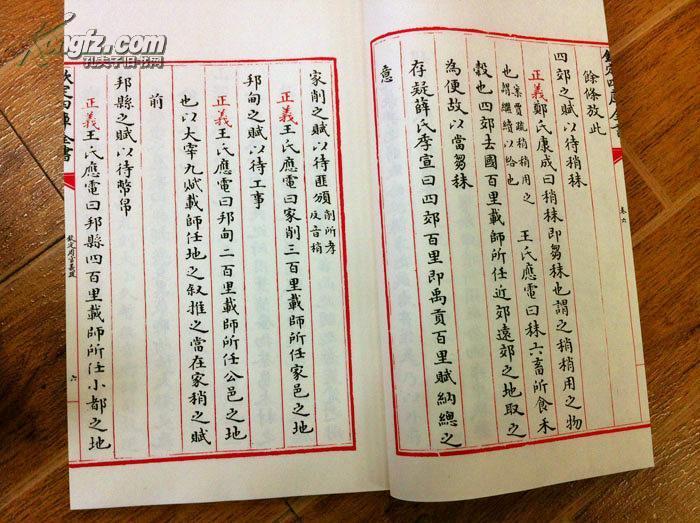 欽定四庫全書
卷六
餘條放此
四郊之賦以待稍秣
正義鄭氏康成曰稍秣即芻秣也謂之稍稍用之物
也案賈疏稍稍用之謂繼續以給也王氏應電曰秣六畜所食禾
穀也四郊去國百里載師所任近郊遠郊之地取之
為便故以當芻秣
存疑薛氏季宣曰四郊百里即禹貢百里賦納總之
意
家削之賦以待匪頒削所孝反音稍
正義王氏應電曰家削三百里載師所任家邑之地
邦甸之賦以待工事
正義王氏應電曰邦甸二百里載師所任公邑之地
也以大宰九賦載師任地之叙推之當在家稍之賦
前
邦縣之賦以待幣帛
正義王氏應電曰邦縣四百里載師所任小都之地
欽定四庫全書
欽定周官義疏
六
kongfz.com
孔夫子旧书网